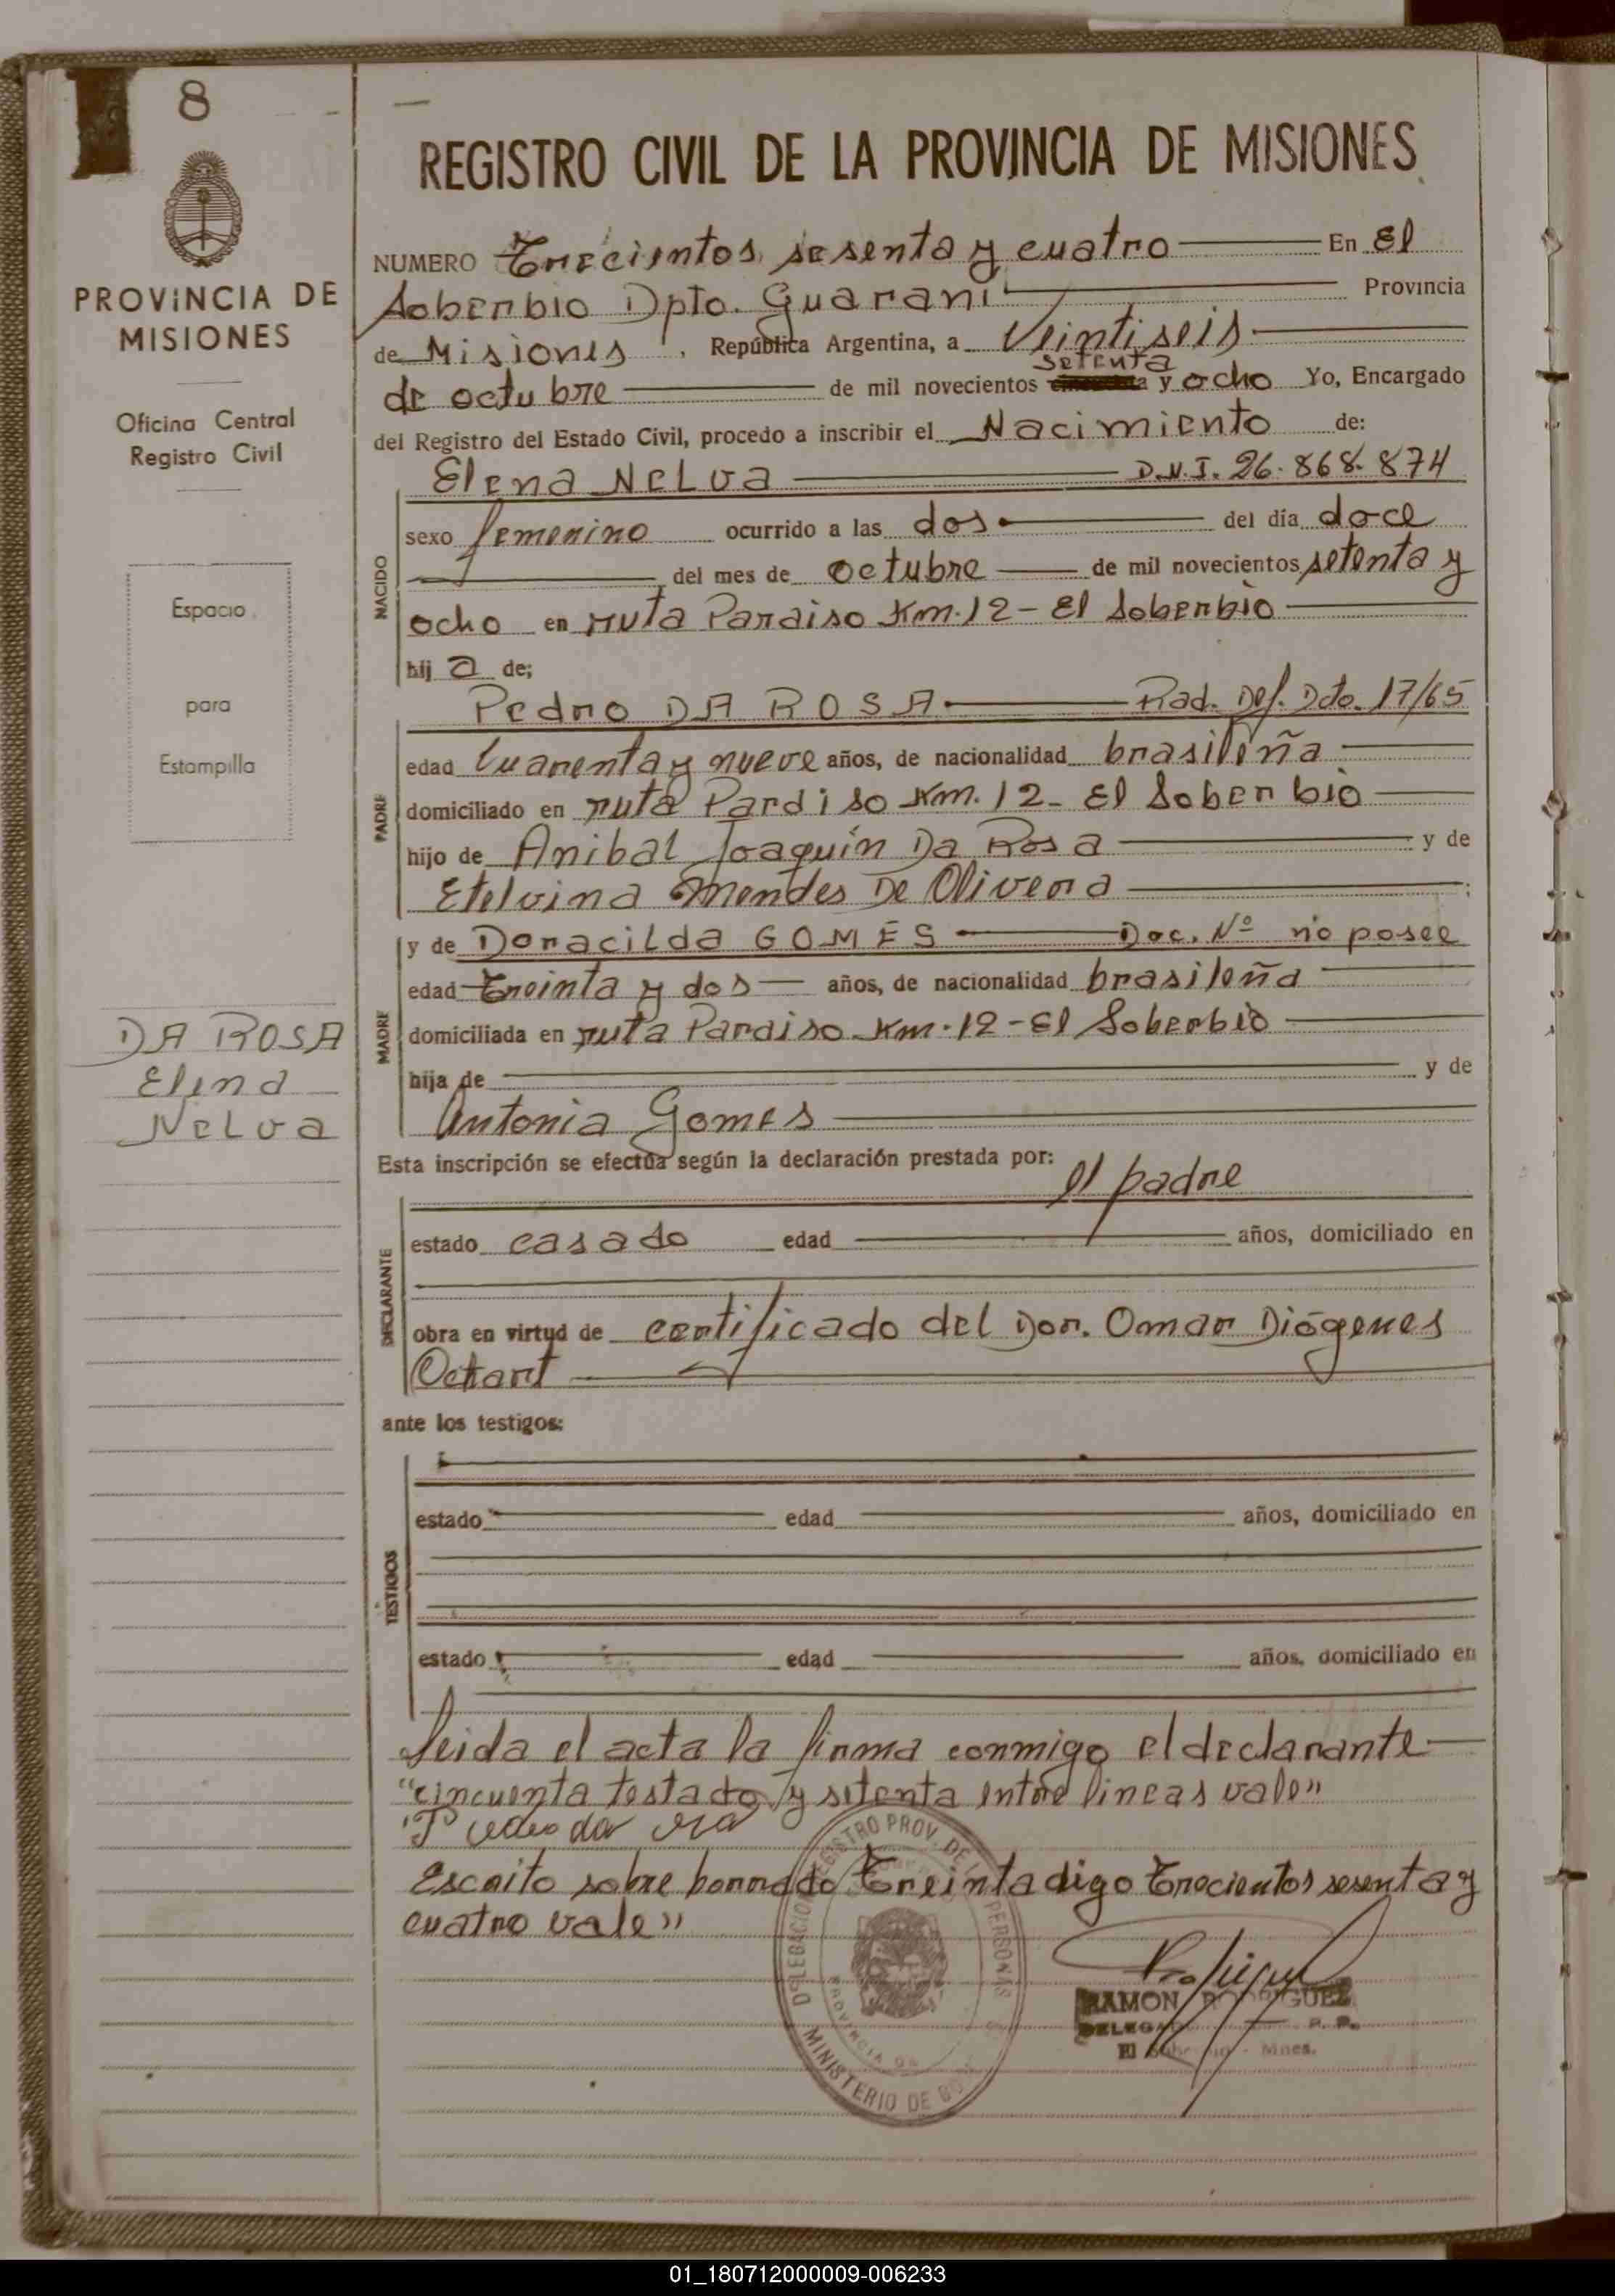 8
PROVINCIA DE
MISIONES
Oficina Central
Registro Civil
Espacio
para
Estampilla
DA ROSA
Elena
Nelva
REGISTRO CIVIL DE LA PROVINCIA DE MISIONES
NUMERO Trecientos sesenta y cuatro En El
Soberbio Dpto. Guarani Provincia
de Misiones, República Argentina, a Veintiseis
setenta
de octubre de mil novecientos y ocho Yo, Encargado
del Registro del Estado Civil, procedo a inscribir el Nacimiento de:
Elena Nelva D.N.I. 26.868.874
NACIDO
sexo femenino ocurrido a las dos del día doce
del mes de octubre de mil novecientos setenta y
ocho en ruta Paraiso Km.12 - El Soberbio
hij a de;
Pedro DA ROSA Rad. Def. Dto. 17/65
PADRE
edad Cuarenta y nueve años, de nacionalidad brasileña
domiciliado en ruta Paraiso Km. 12 - El Soberbio
hijo de Anibal Joaquín Da Rosa y de
Etelvina Mendes De Olivera ;
y de Doracilda GOMES Doc. Nº no posee
MADRE
edad Treinta y dos años, de nacionalidad brasileña
domiciliada en ruta Paraiso Km.12 - El Soberbio
hija de y de
Antonia Gomes
Esta inscripción se efectúa según la declaración prestada por:
el padre
DECLARANTE
estado casado edad años, domiciliado en
obra en virtud de certificado del Dor. Omar Diógenes
ante los testigos:
TESTIGOS
estado edad años, domiciliado en
estado edad años, domiciliado en
Leida el acta la firma conmigo el declarante
"cincuenta testado y setenta entre lineas vale"
Escrito sobre borrado Treinta digo Trecientos sesenta y
cuatro vale"
REGISTRO PROV. DE LAS PERSONAS
DELEGACION
PROVINCIA DE
MINISTERIO DE
RAMON RODRIGUEZ
El Soberbio - Mnes.
01_180712000009-006233